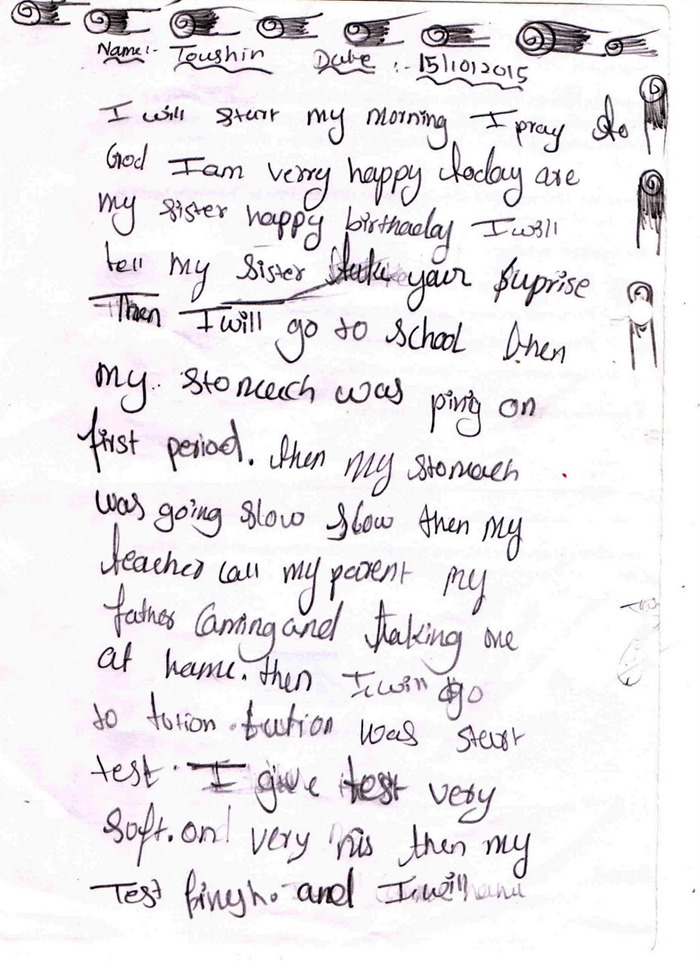 Name:- Toushin Date :- 15/10/2015
I will start my morning I pray to
God I am verry happy today are
my sister happy birthday I will
tell my sister take your suprise
Then I will go to school then
my stomach was ping on
first period. then my stomach
was going slow slow then my
teacher call my parent my
father Coming and taking me
at home. then I will go
to tution tution was start
test. I give test very
soft. and very nis then my
Test finsh. and I will